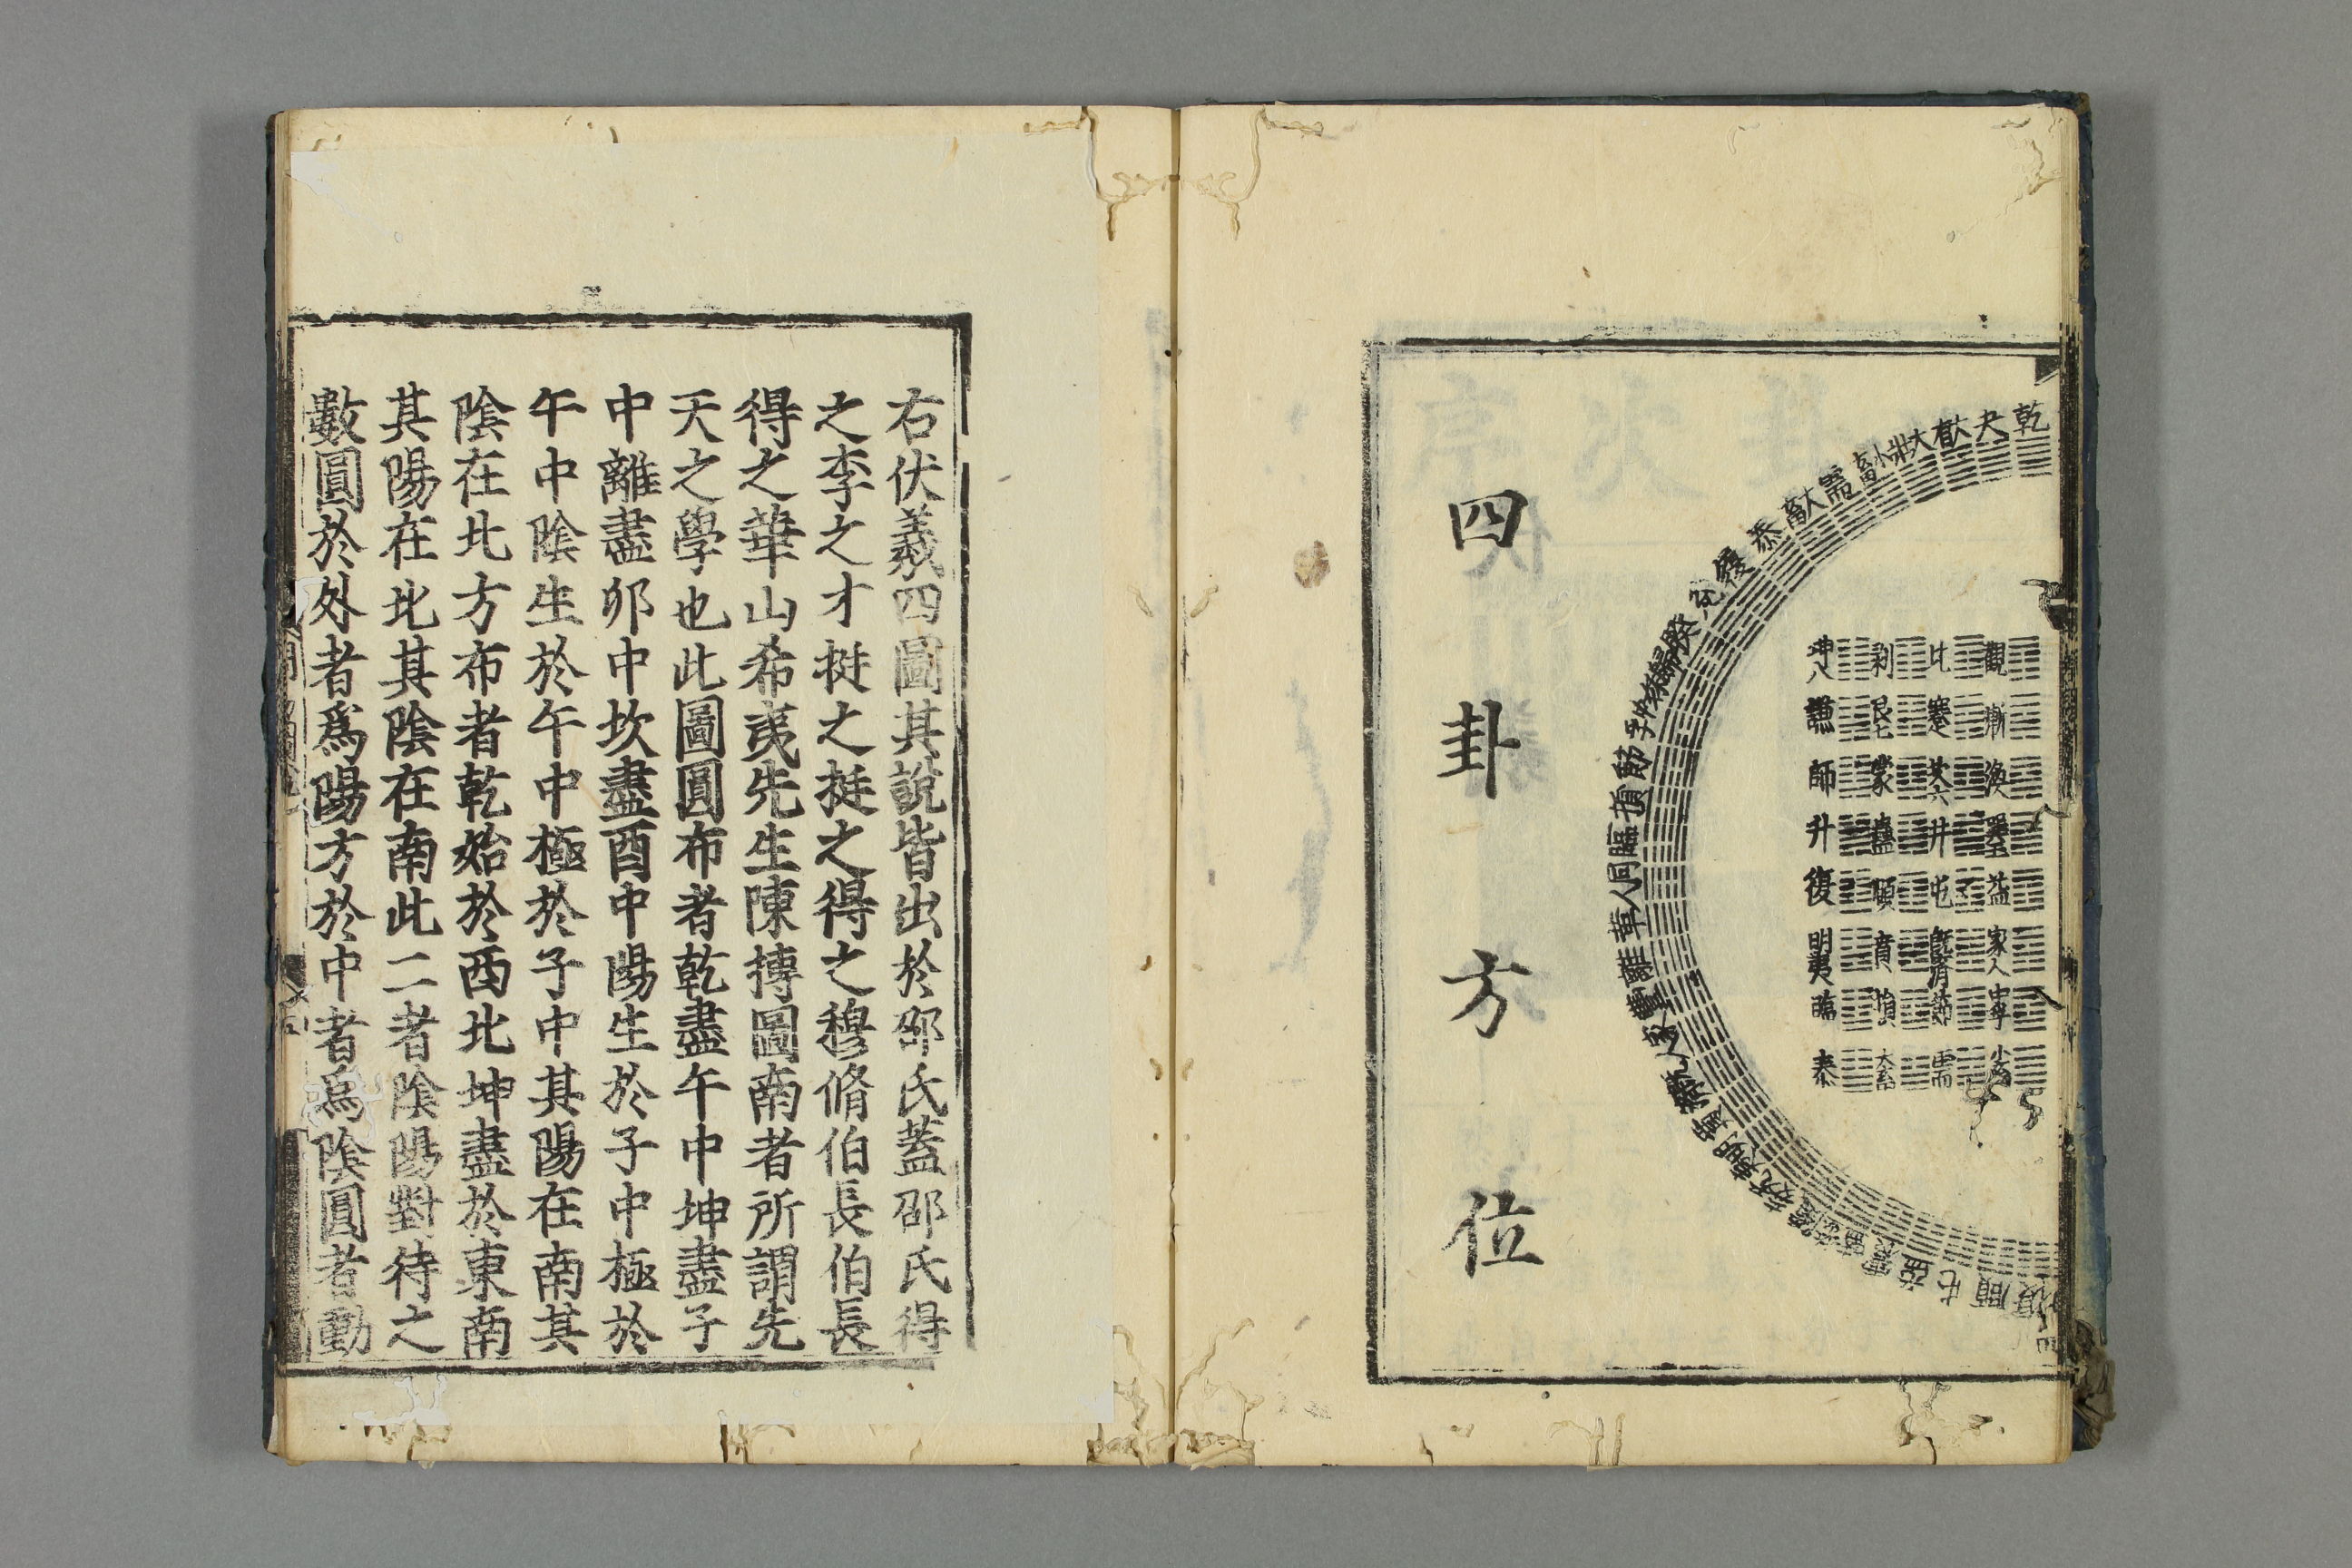 四卦方位
乾
夬
大有
大壯
小畜
需
大畜
泰
履
兌
睽
歸妹
中孚
節
損
臨
同人
革
離
豐
家人
頤
屯
益
復
觀
漸
渙
益
家人
中孚
小畜
比
蹇
坎六
井
屯
既濟
節
需
剝
艮七
蒙
蠱
頤
賁
損
大畜
坤八
謙
師
升
復
明夷
臨
泰
右伏羲四圖其說皆出於邵氏蓋邵氏得
之李之才挺之挺之得之穆脩伯長伯長
得之華山希夷先生陳摶圖南者所謂先
天之學也此圖圓布者乾盡午中坤盡子
中離盡卯中坎盡酉中陽生於子中極於
午中陰生於午中極於子中其陽在南其
陰在北方布者乾始於西北坤盡於東南
其陽在北其陰在南此二者陰陽對待之
數圓於外者爲陽方於中者爲陰圓者動